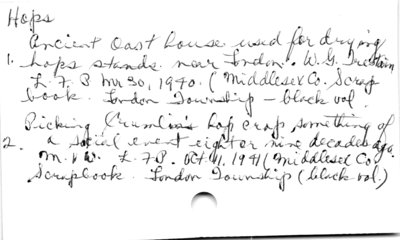 Hops
Ancient Oast house used for drying
1. hops stands near London. W. G. Tristain
L. F. P Mr 30, 1940. (Middlesex Co. Scrap
book. London Township - black vol.
Picking Crumlin's hop crop, something of
2. a social event eight or nine decades ago.
M. v W. L. F P. Oct 11, 1941 (Middlesex Co.
Scrapbook. London Township (black vol.)